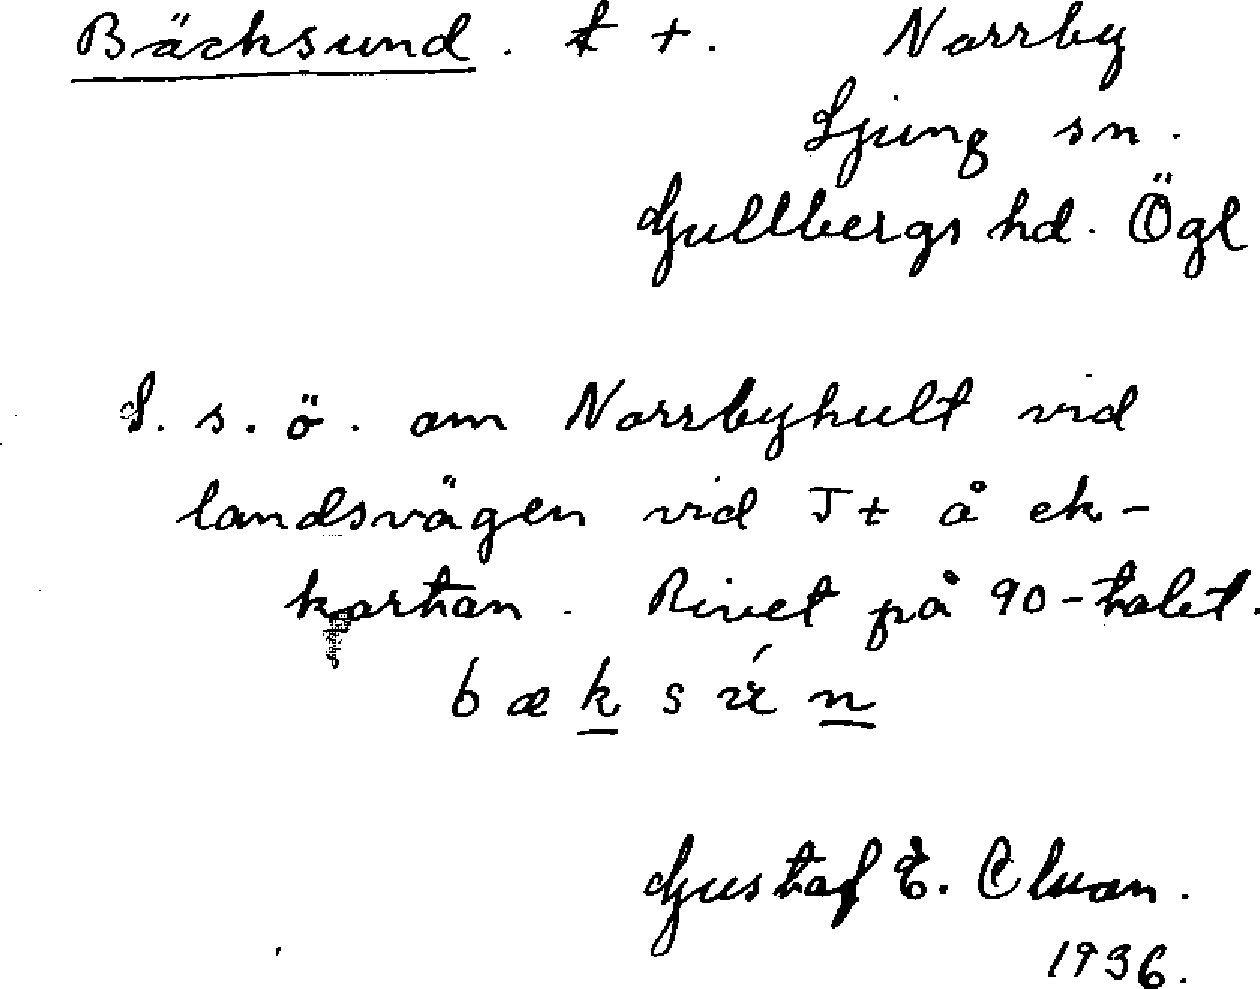 Bäcksund. t +. Norrby
Ljung sn.
Gullbergs hd. Ögl
S. s. ö. om Norrbyhult vid
landsvägen vid Jt å ek-
kartan. Rivet på 90-talet.
Gustaf E.
1936.